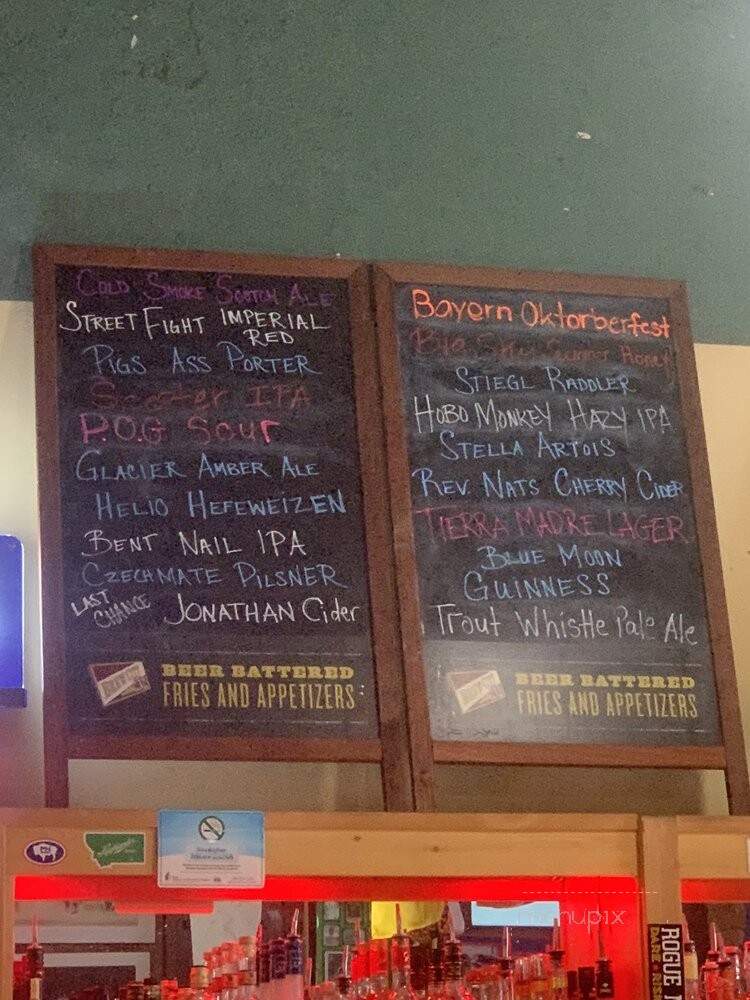 COLD SMOKE SCOTCH ALE
STREET FIGHT IMPERIAL
RED
PIGS ASS PORTER
Scooter IPA
P.O.G Sour
GLACIER AMBER ALE
HELIO HEFEWEIZEN
BENT NAIL IPA
CZECHMATE PILSNER
LAST
CHANCE JONATHAN Cider
BEER BATTERED
FRIES AND APPETIZERS
Bayern Oktorberfest
Honey
STIEGL RADDLER
HOBO MONKEY HAZY IPA
STELLA ARTOIS
REV. NATS CHERRY CIDER
TIERRA MADRE LAGER
BLUE MOON
GUINNESS
Trout Whistle Pale Ale
BEER BATTERED
FRIES AND APPETIZERS
ROGUE